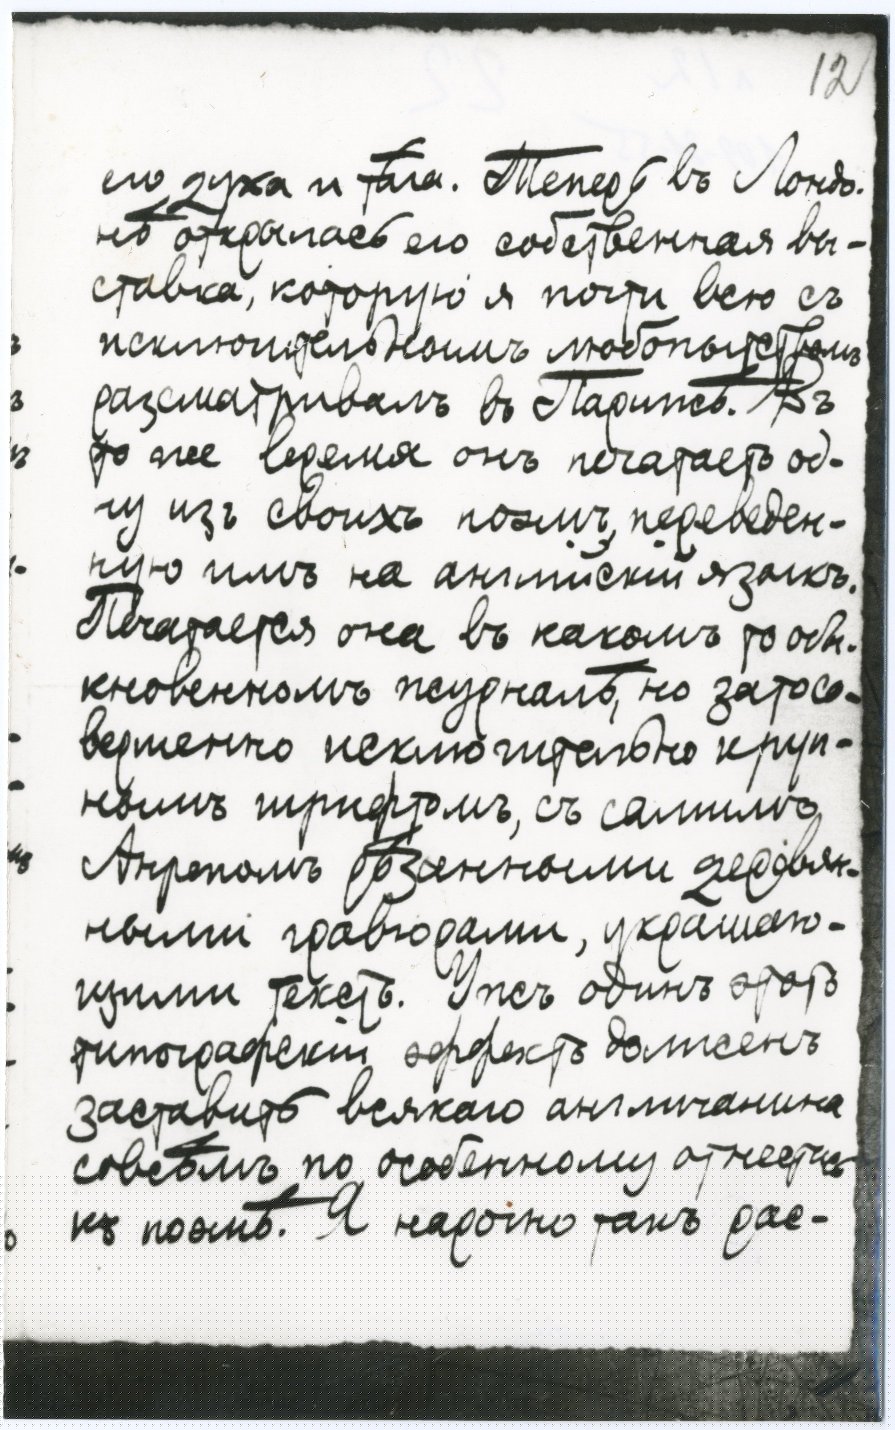 12
его духа и тѣла. Теперь въ Лондо-
нѣ открылась его собственная вы-
ставка, которую я почти всю съ
исключительнымъ любопытствомъ
разсматривалъ въ Парижѣ. Въ
то же время онъ печатаетъ од-
ну изъ своихъ поэмъ, переведен-
ную имъ на англійскій языкъ.
Печатается она въ какомъ то обы-
кновенномъ журналѣ, но зато со-
вершенно исключительно круп-
нымъ шрифтомъ, съ самимъ
Анрепомъ рѣзанными деревян-
ными гравюрами, украшаю-
щими текстъ. Ужъ одинъ этотъ
типографскій эффектъ долженъ
заставить всякаго англичанина
совсѣмъ по особенному отнестись
къ поэмѣ. Я нарочно такъ рас-